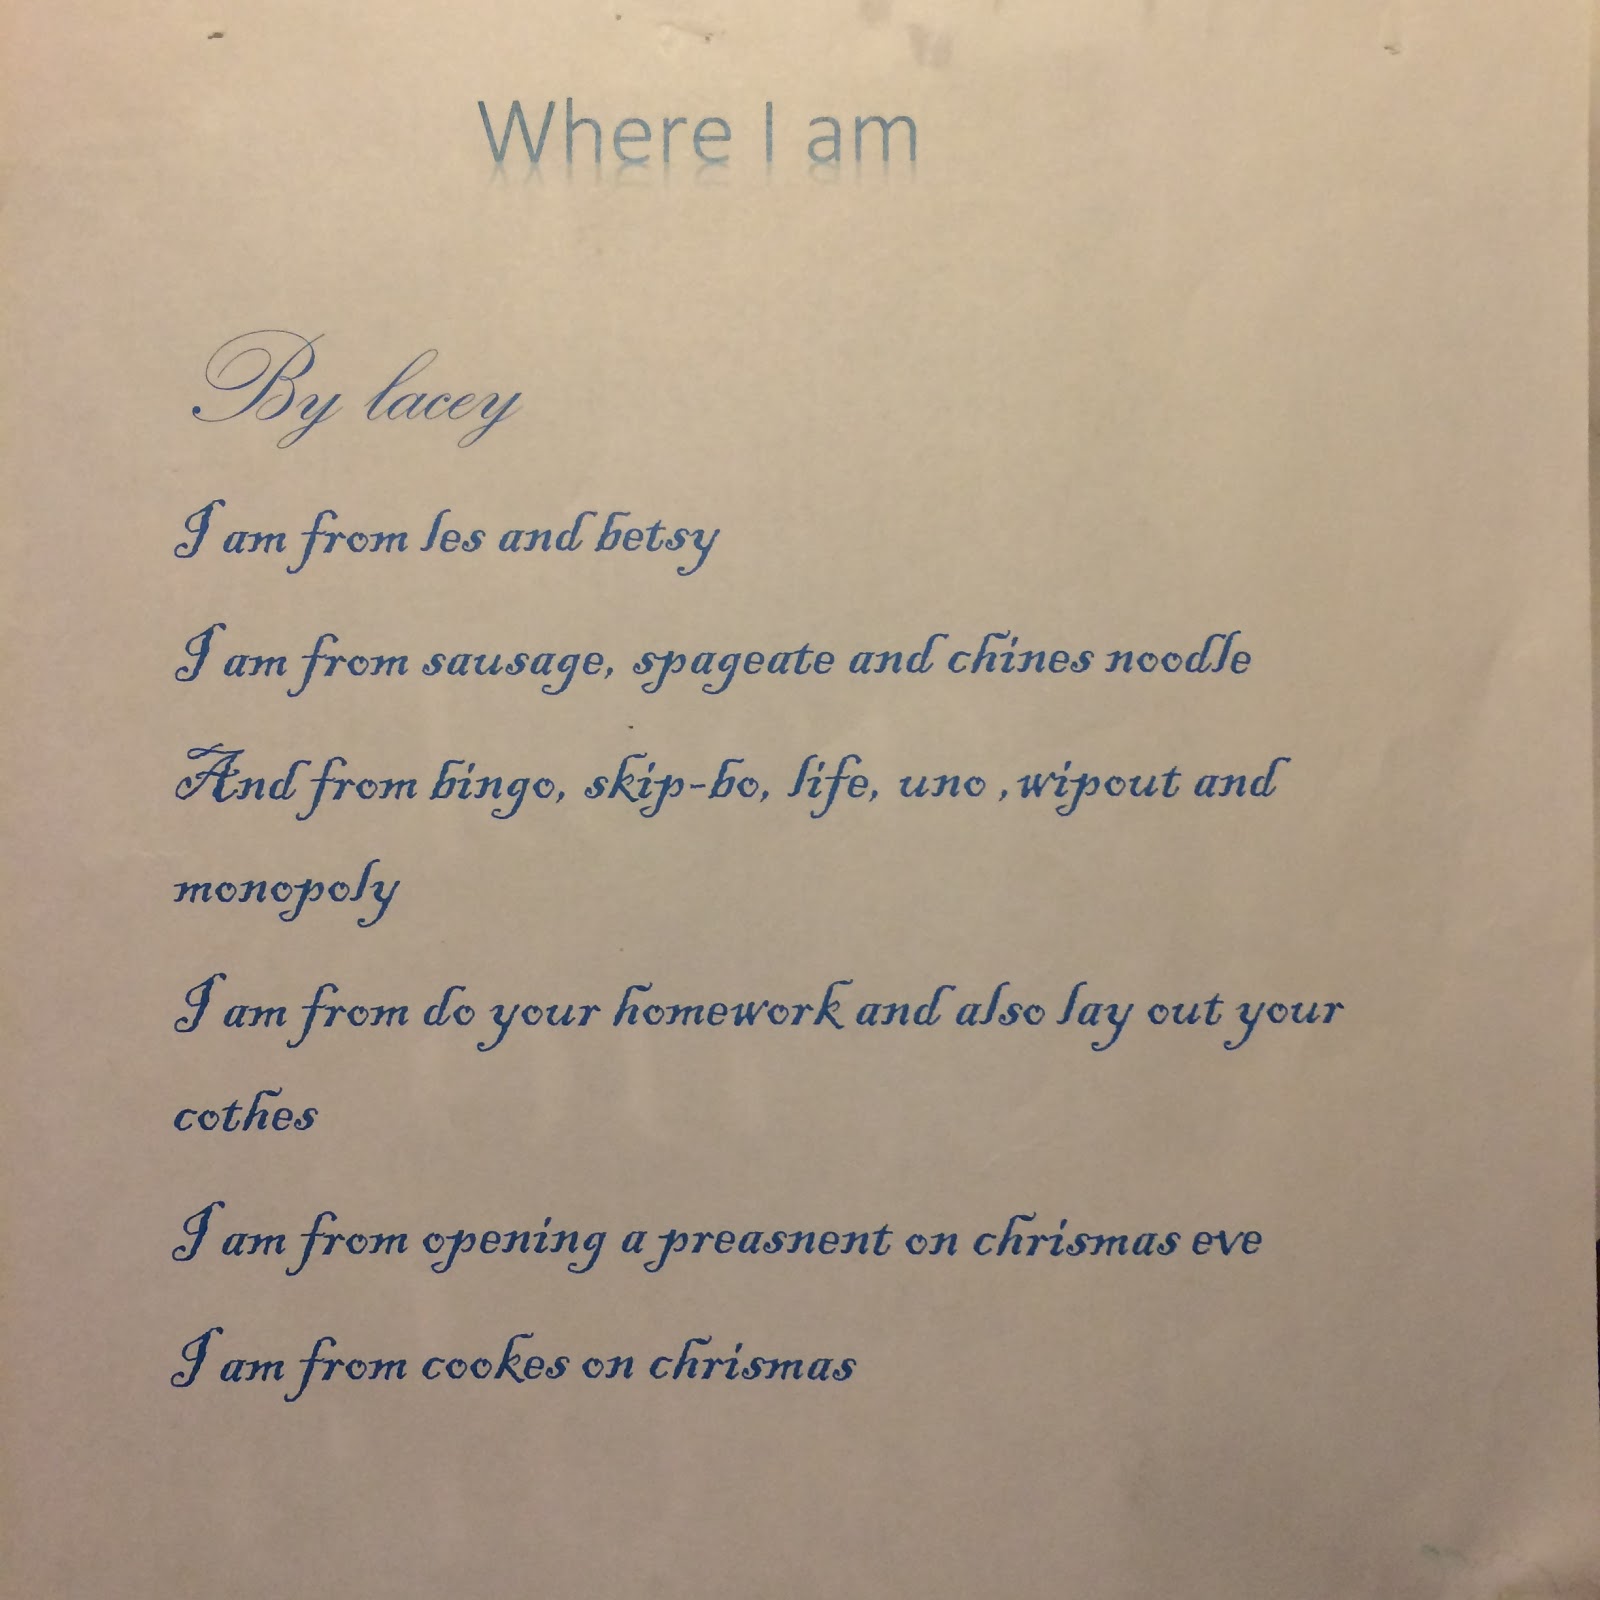 Where I am
By lacey
I am from les and betsy
I am from sausage, spageate and chines noodle
And from bingo, skip-bo, life, uno ,wipout and
monopoly
I am from do your homework and also lay out your
cothes
I am from opening a preasnent on chrismas eve
I am from cookes on chrismas